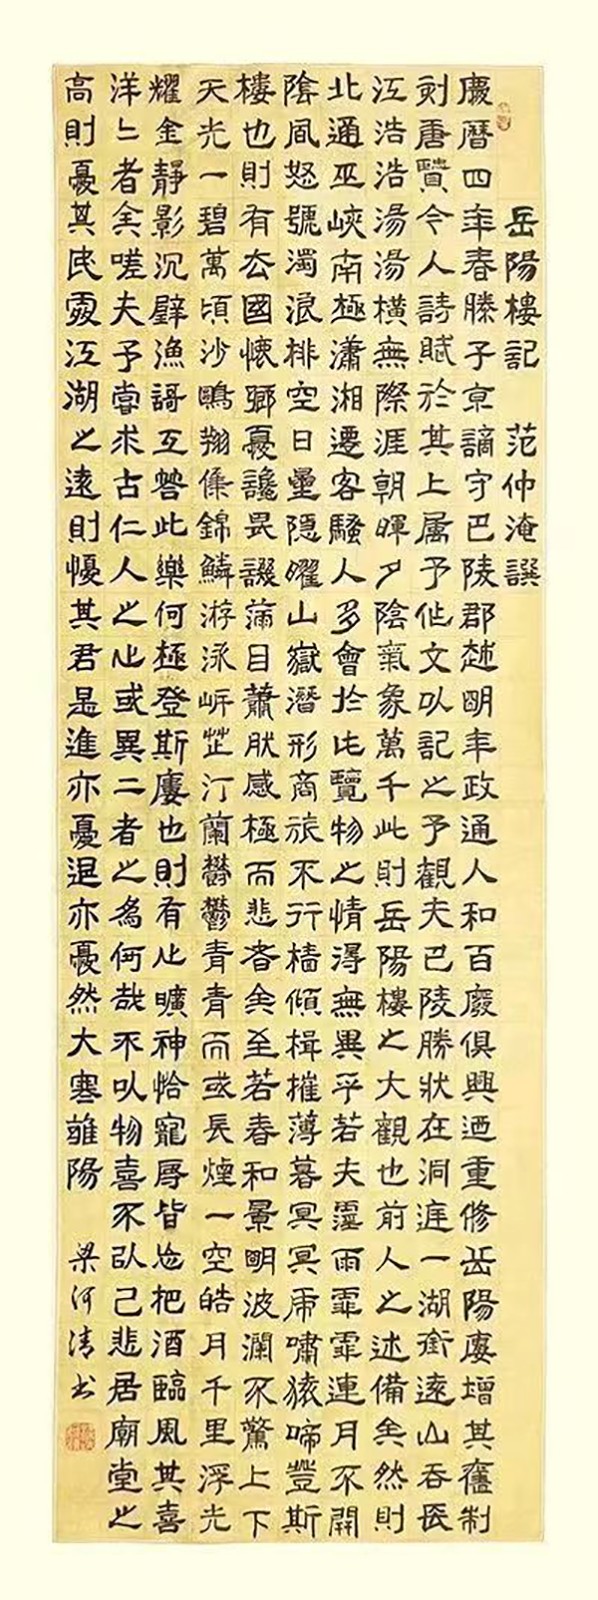 岳陽樓記 范仲淹譔
慶曆四年春滕子京謫守巴陵郡越明年政通人和百廢俱興迺重修岳陽廔增其舊制
刻唐賢今人詩賦於其上属予作文以記之予觀夫巴陵勝狀在洞庭一湖銜遠山吞長
江浩浩湯湯橫無際涯朝暉夕陰氣象萬千此則岳陽樓之大觀也前人之述備矣然則
北通巫峽南極瀟湘遷客騷人多會於此覽物之情得無異乎若夫霪雨霏霏連月不開
陰風怒號濁浪排空日星隱曜山嶽潛形商旅不行檣傾楫摧薄暮冥冥虎嘯猿啼登斯
樓也則有去國懷鄉憂讒畏譏滿目蕭然感極而悲者矣至若春和景明波瀾不驚上下
天光一碧萬頃沙鷗翔集錦鱗游泳岸芷汀蘭鬱鬱青青而或長煙一空皓月千里浮光
耀金靜影沉璧漁謌互答此樂何極登斯廔也則有心曠神怡寵辱皆忘把酒臨風其喜
洋洋者矣嗟夫予嘗求古仁人之心或異二者之為何哉不以物喜不以己悲居廟堂之
高則憂其民處江湖之遠則懮其君是進亦憂退亦憂然大寒雒陽 梁河清书